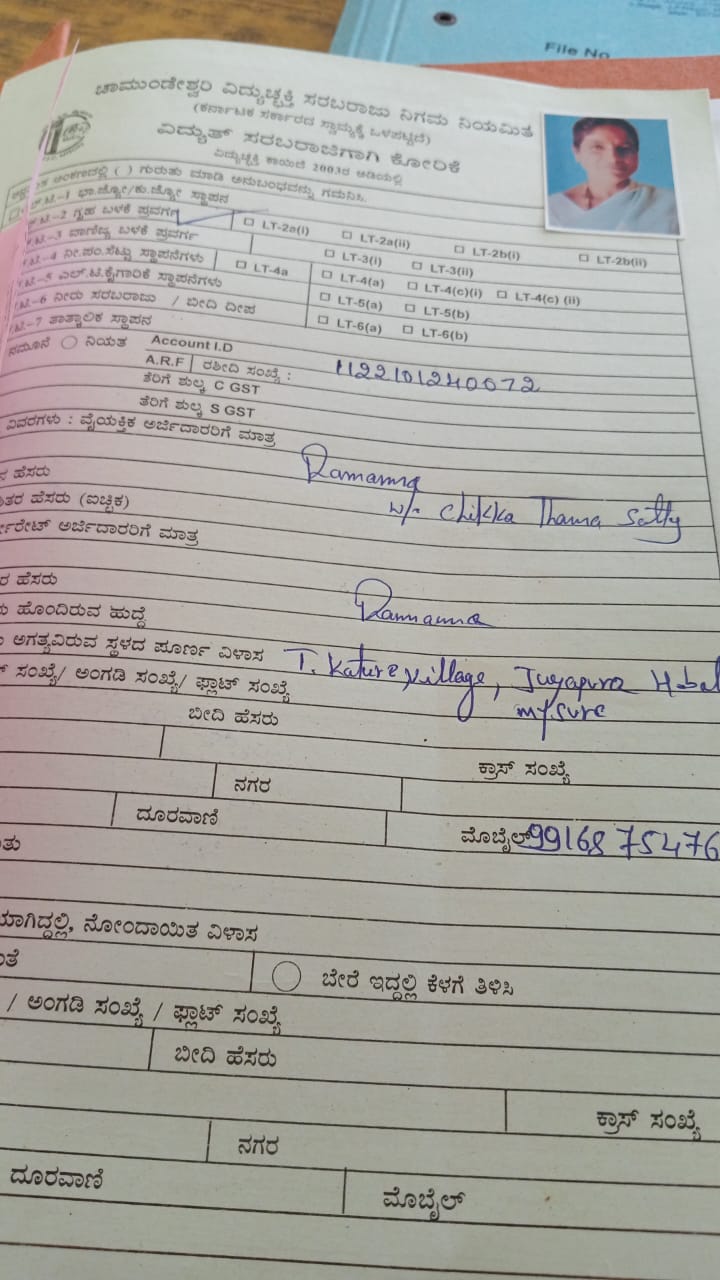 File No
ಚಾಮುಂಡೇಶ್ವರಿ ವಿದ್ಯುಚ್ಛಕ್ತಿ ಸರಬರಾಜು ನಿಗಮ ನಿಯಮಿತ
(ಕರ್ನಾಟಕ ಸರ್ಕಾರದ ಸ್ವಾಮ್ಯಕ್ಕೆ ಒಳಪಟ್ಟಿದೆ)
ವಿದ್ಯುತ್ ಸರಬರಾಜಿಗಾಗಿ ಕೋರಿಕೆ
ವಿದ್ಯುಚ್ಛಕ್ತಿ ಕಾಯಿದೆ 2003ರ ಅಡಿಯಲ್ಲಿ
ಅಂಕಣದಲ್ಲಿ ( ) ಗುರುತು ಮಾಡಿ ಅನುಬಂಧವನ್ನು ಗಮನಿಸಿ.
-1 ಭಾ.ಜ್ಯೋ/ಕು.ಜ್ಯೋ ಸ್ಥಾಪನ
.ಟಿ.-2 ಗೃಹ ಬಳಕೆ ಪ್ರವರ್ಗ □ LT-2a(i) □ LT-2a(ii) □ LT-2b(i) □ LT-2b(ii)
.ಟಿ.-3 ವಾಣಿಜ್ಯ ಬಳಕೆ ಪ್ರವರ್ಗ □ LT-3(i) □ LT-3(ii)
.ಟಿ.-4 ನೀ.ಪಂ.ಸೆಟ್ಟು ಸ್ಥಾಪನೆಗಳು □ LT-4a □ LT-4(a) □ LT-4(c)(i) □ LT-4(c) (ii)
.ಟಿ.-5 ಎಲ್.ಟಿ.ಕೈಗಾರಿಕೆ ಸ್ಥಾಪನೆಗಳು □ LT-5(a) □ LT-5(b)
.ಟಿ.-6 ನೀರು ಸರಬರಾಜು / ಬೀದಿ ದೀಪ □ LT-6(a) □ LT-6(b)
.ಟಿ.-7 ತಾತ್ಕಾಲಿಕ ಸ್ಥಾಪನ
ನಮೂನೆ ○ ನಿಯತ Account I.D
A.R.F ರಶೀದಿ ಸಂಖ್ಯೆ : 1122101240072
ತೆರಿಗೆ ಶುಲ್ಕ C GST
ತೆರಿಗೆ ಶುಲ್ಕ S GST
ವಿವರಗಳು : ವೈಯಕ್ತಿಕ ಅರ್ಜಿದಾರರಿಗೆ ಮಾತ್ರ
ನ ಹೆಸರು Ramamma
ತರ ಹೆಸರು (ಐಚ್ಛಿಕ) w/o Chikka Thama Setty
ರೇಟ್ ಅರ್ಜಿದಾರರಿಗೆ ಮಾತ್ರ
ರ ಹೆಸರು
ಹೊಂದಿರುವ ಹುದ್ದೆ Ramamma
ಅಗತ್ಯವಿರುವ ಸ್ಥಳದ ಪೂರ್ಣ ವಿಳಾಸ T. Kature Village, Juyapura Hobal
ಸಂಖ್ಯೆ/ ಅಂಗಡಿ ಸಂಖ್ಯೆ/ ಫ್ಲಾಟ್ ಸಂಖ್ಯೆ mysure
ಬೀದಿ ಹೆಸರು
ಕ್ರಾಸ್ ಸಂಖ್ಯೆ
ನಗರ
ದೂರವಾಣಿ ಮೊಬೈಲ್ 9916875476
ಯಾಗಿದ್ದಲ್ಲಿ, ನೋಂದಾಯಿತ ವಿಳಾಸ
○ ಬೇರೆ ಇದ್ದಲ್ಲಿ ಕೆಳಗೆ ತಿಳಿಸಿ
/ ಅಂಗಡಿ ಸಂಖ್ಯೆ / ಫ್ಲಾಟ್ ಸಂಖ್ಯೆ
ಬೀದಿ ಹೆಸರು
ಕ್ರಾಸ್ ಸಂಖ್ಯೆ
ನಗರ
ದೂರವಾಣಿ ಮೊಬೈಲ್